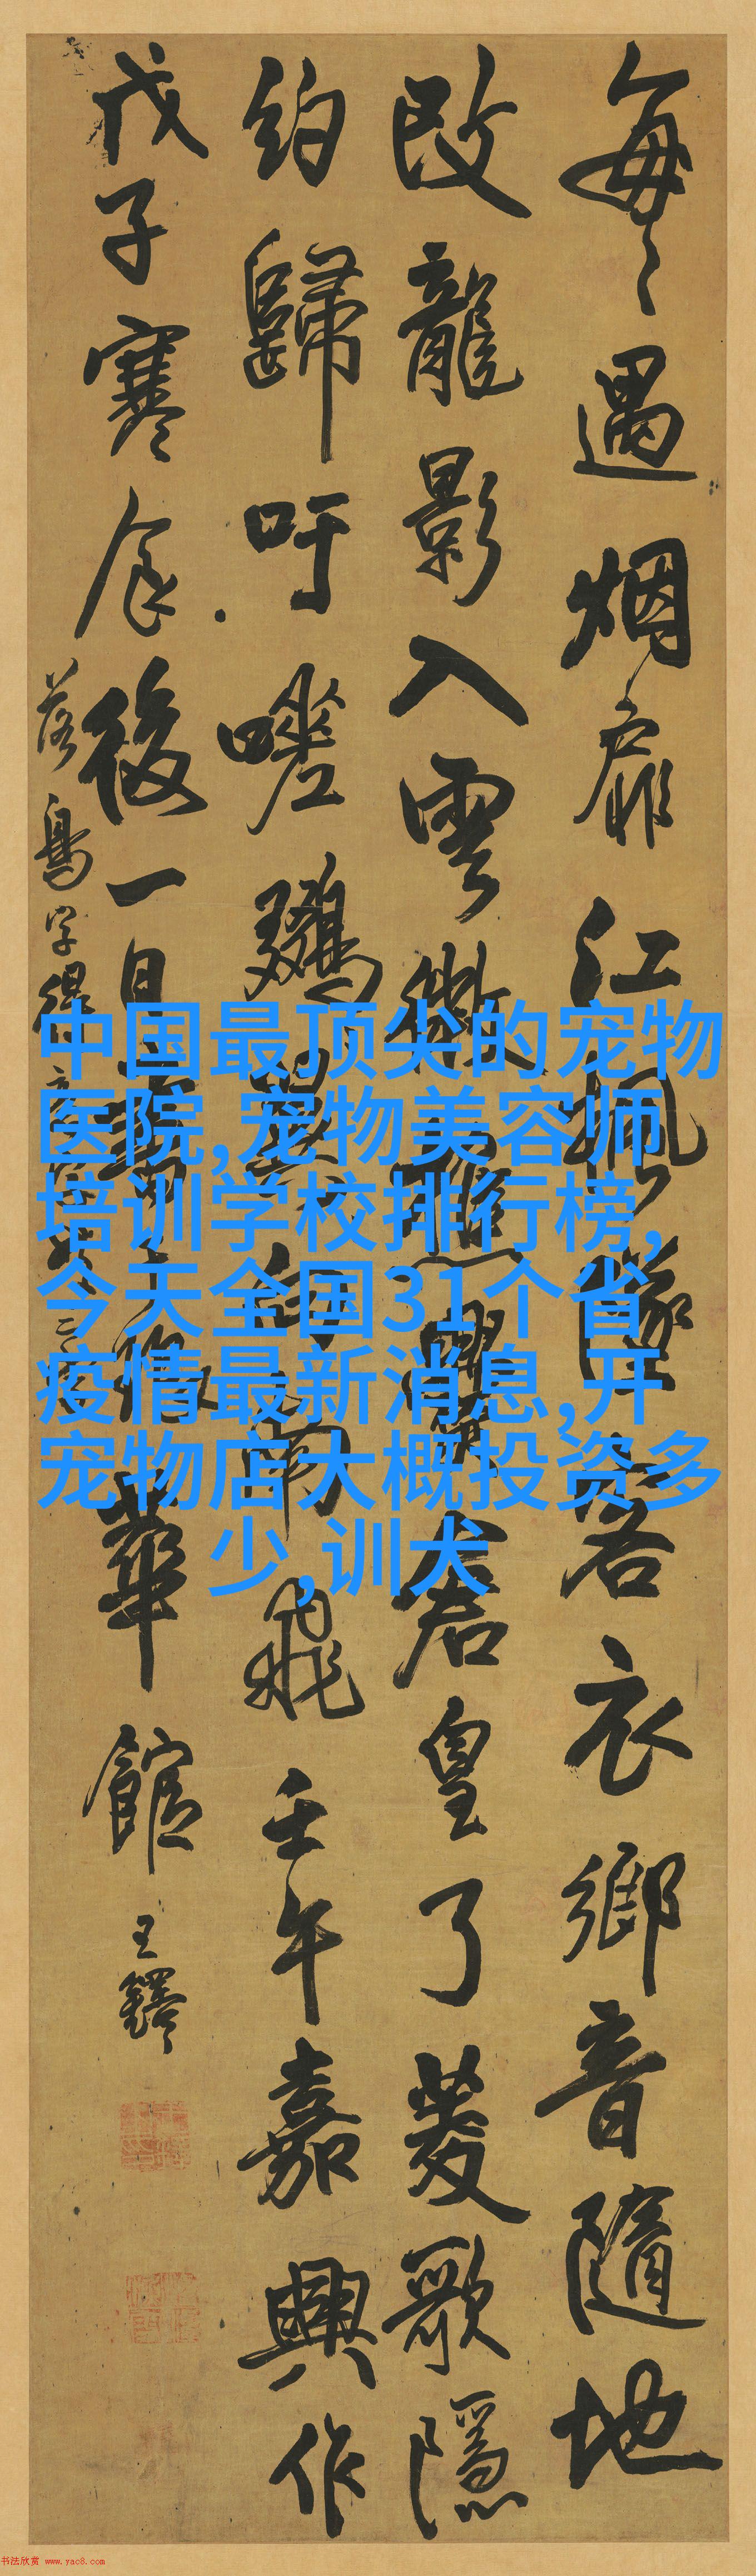 每々遇烟扉江楓隊
客衣鄉音隨地
改龍影入雲
倉皇了菱歌隱
約歸吁嗟鵝
飛壬午嘉興作
戊子寒食後一日
華館王鐸
落鳥字
中国最顶尖的宠物
医院,宠物美容师
培训学校排行榜,
今天全国31个省
疫情最新消息,开
宠物店大概投资多
少,训犬
书法欣赏 www.yac8.com